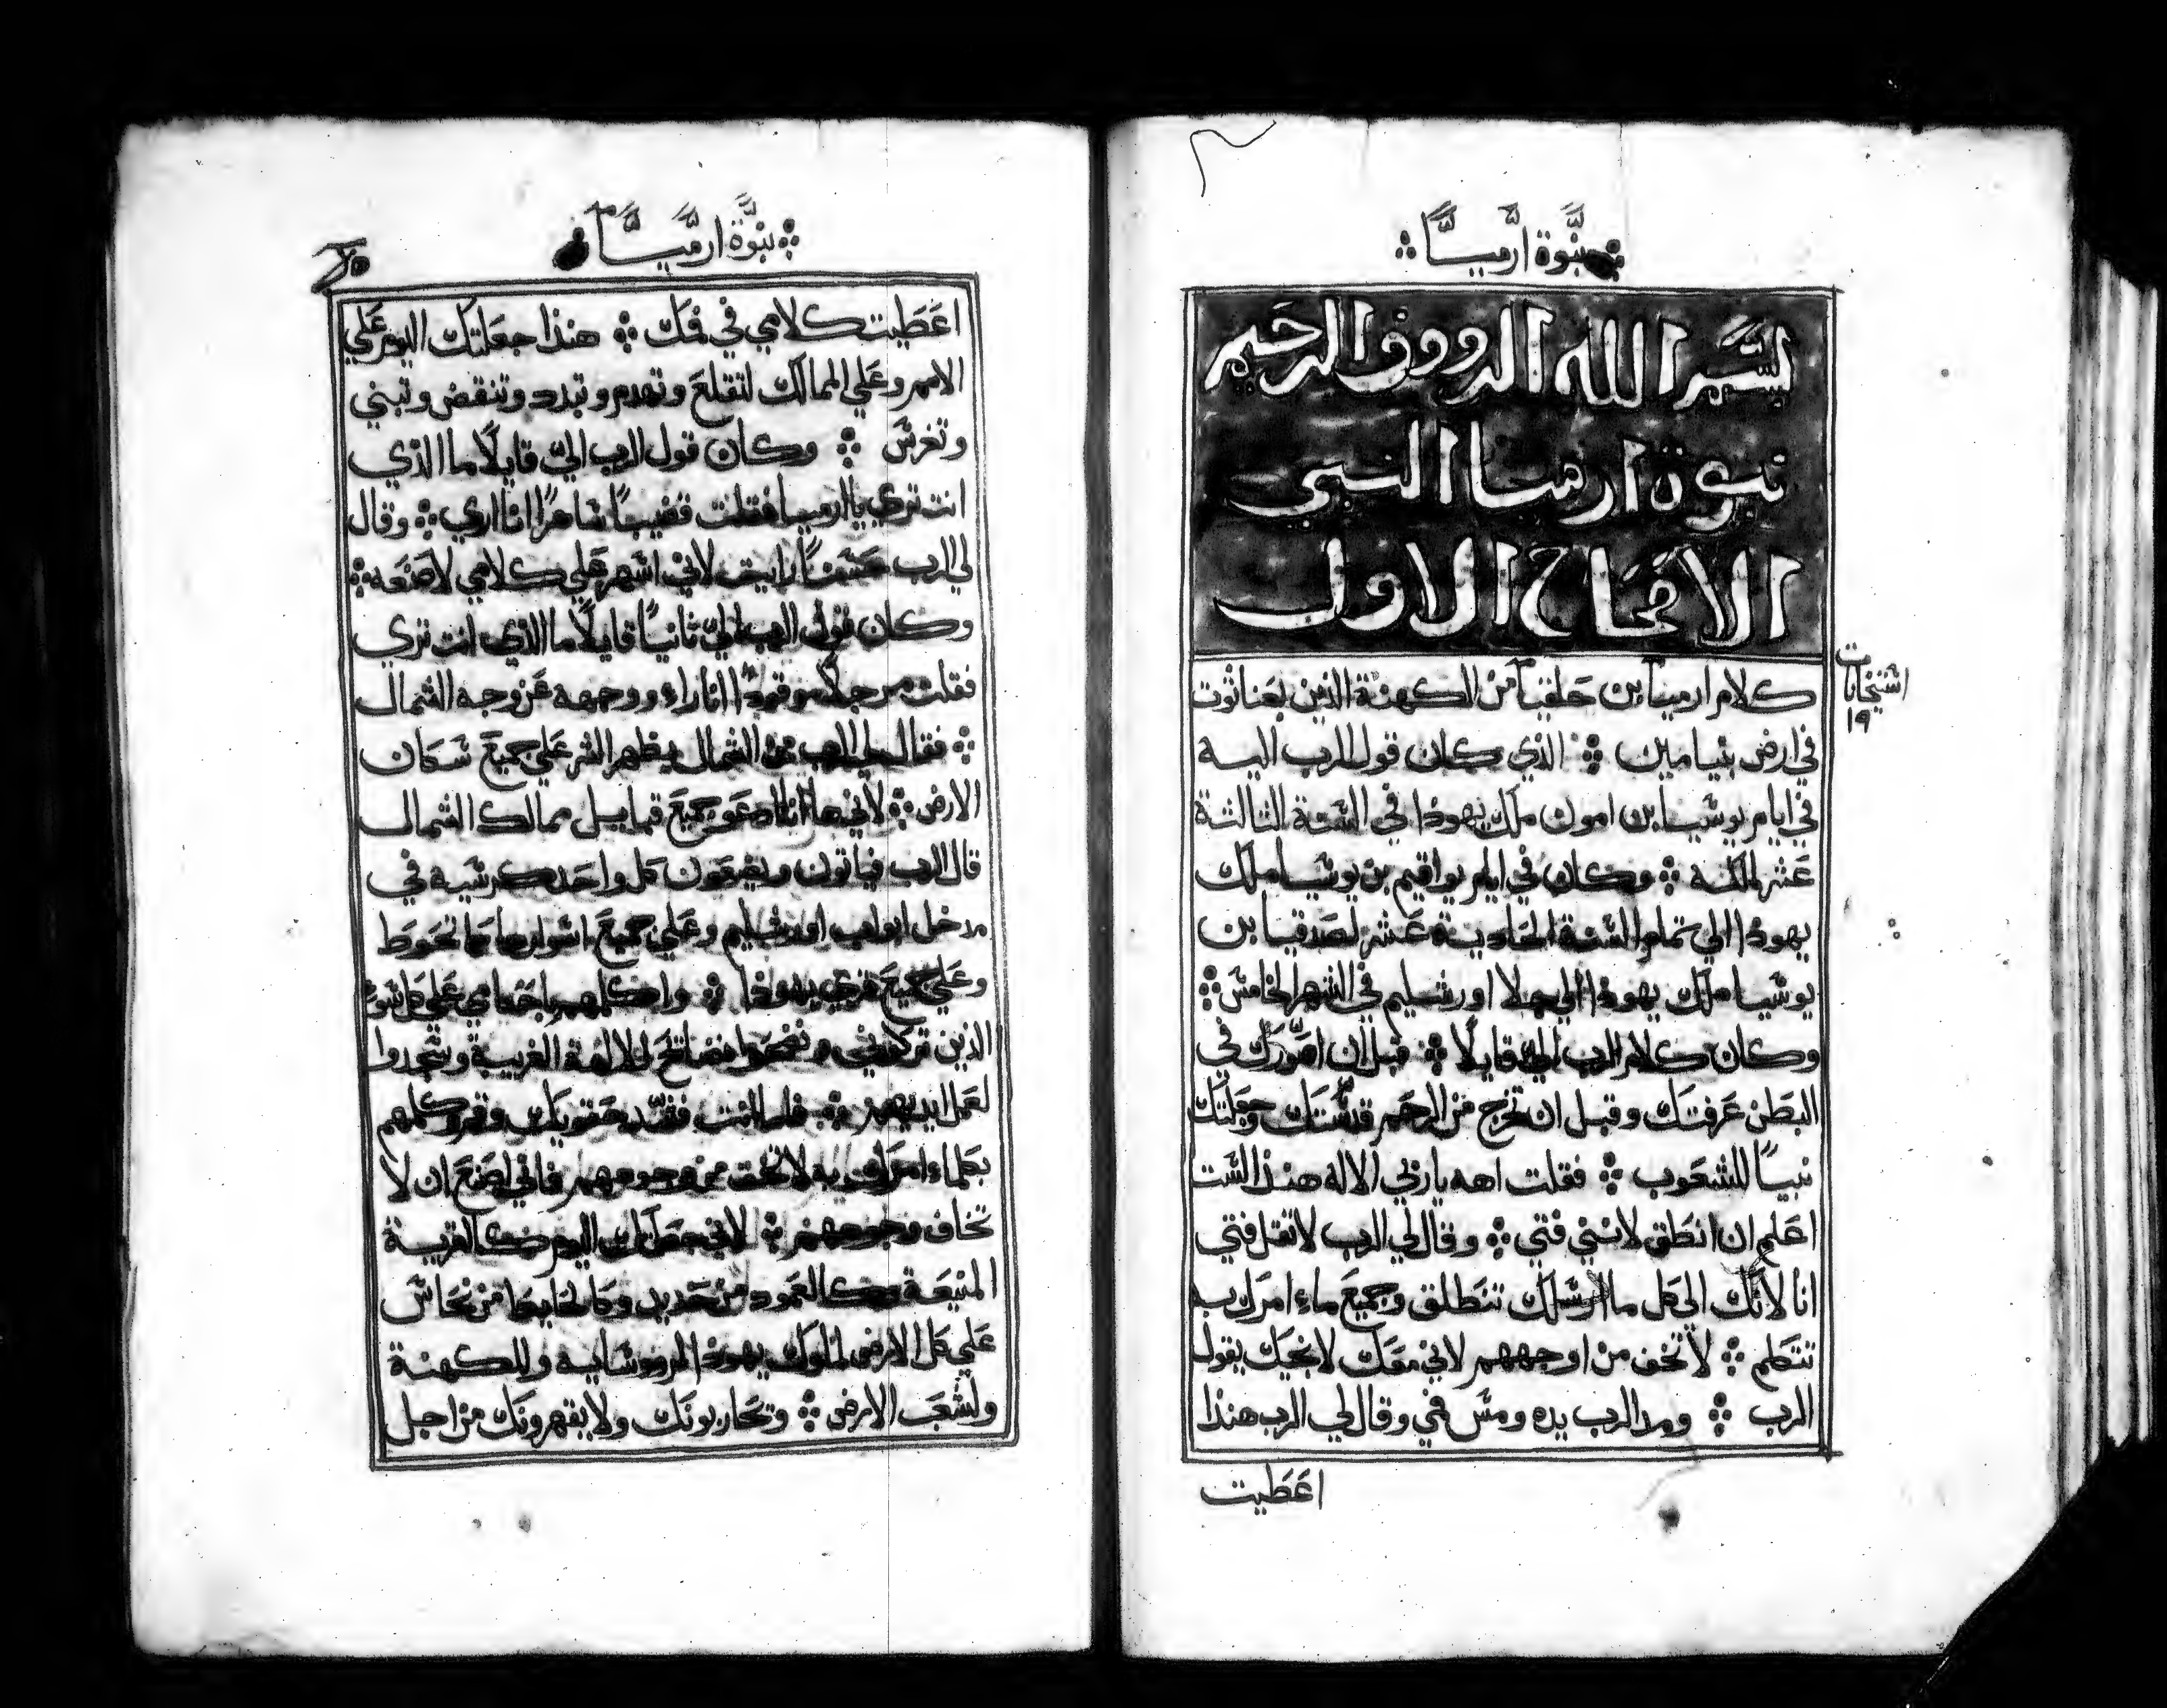 نبوة ارميا
بسم الله الرووف الرحيم
نبوة ارميا النبي
الاصحاح الاول
١٩
كلام ارميا بن حلقيا من الكهنة الذين بعناثوت
في ارض بنيامين ❖ الذي كان قول الرب اليه
في ايام يوشيا بن امون ملك يهوذا في السنة الثالثة
عشر لملكه ❖ وكان في ايام يواقيم بن يوشيا ملك
يهوذا الي تمام السنة الحادية عشر لصدقيا بن
يوشيا ملك يهوذا الي جلا اورشليم في الشهر الخامس ❖
وكان كلام الرب الي قايلا ❖ قبل ان اصورك في
البطن عرفتك وقبل ان تخرج من الرحم قدستك وجعلتك
نبيا للشعوب ❖ فقلت اهه يا ربي الاله هنذا لست
اعلم ان انطق لانني فتي ❖ وقال لي الرب لا تقل فتي
انا لانك الي كل ما ارسلك تنطلق وجميع ماء امرك به
تتكلم ❖ لا تخف من اوجههم لاني معك لانجيك يقول
الرب ❖ ومد الرب يده ومس فمي وقال لي الرب هنذا
اعطيت
نبوة ارميا
اعطيت كلامي في فمك ❖ هنذا جعلتك اليوم علي
الامم وعلي الممالك لتقلع وتهدم وتبدد وتنقض وتبني
وتغرس ❖ وكان قول الرب الي قايلا ما الذي
انت تري يا ارميا فقلت قضيبا ساهرا انا اري ❖ وقال
لي الرب حسنا رايت لاني اسهر علي كلامي لاصنعه ❖
وكان قول الرب الي ثانيا قايلا ما الذي انت تري
فقلت مرجلا موقودا انا راء ووجهه عن وجه الشمال
❖ فقال لي الرب من الشمال يظهر الشر علي جميع سكان
الارض ❖ لاني ها انا ادعو جميع قبايل ممالك الشمال
قال الرب فياتون ويضعون كل واحد كرسيه في
مدخل ابواب اورشليم وعلي جميع اسوارها بما تحوط
وعلي جميع قري يهوذا ❖ واكلمهم باحكامي علي كل سوء
الذين تركوني و للالهة الغريبة وسجدوا
لعمل ايديهم ❖ فاما انت فشد حقويك وقم وكلمهم
بكلماء امرك به لا تخف من وجوههم فاني اصنع ان لا
تخاف وجوههم ❖ لاني جعلتك اليوم كالقرية
المنيعة وكالعمود من حديد وكالحايط من نحاس
علي كل الارض لملوك يهوذا لرووسايه وللكهنة
ولشعب الارض ❖ وتحاربونك ولا يقهرونك من اجل